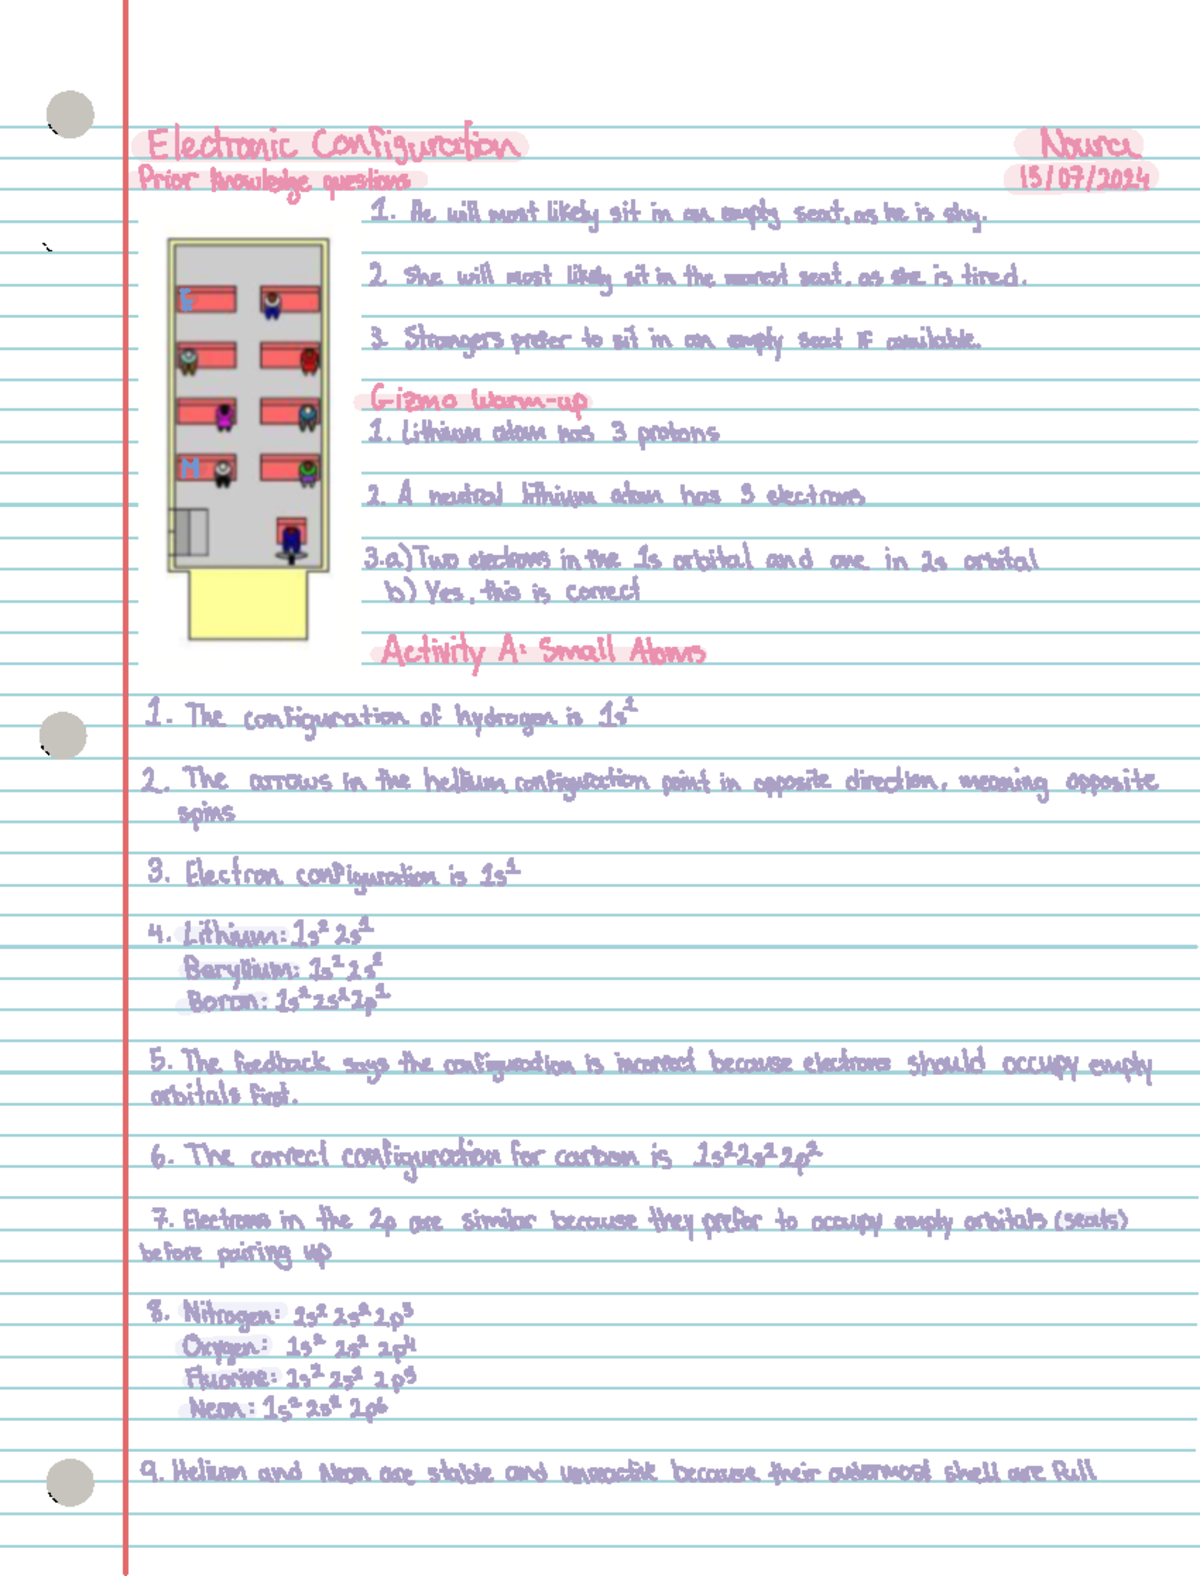 Electronic Configuration
Noura
Prior knowledge questions
15/07/2024
1. He will most likely sit in an empty seat, as he is shy.
2. She will most likely sit in the nearest seat, as she is tired.
3. Strangers prefer to sit in an empty seat if available.
E
M
Gizmo Warm-up
1. Lithium atom has 3 protons
2. A neutral lithium atom has 3 electrons
3.a) Two electrons in the 1s orbital and one in 2s orbital
b) Yes, this is correct
Activity A: Small Atoms
1. The configuration of hydrogen is 1s¹
2. The arrows in the helium configuration point in opposite direction, meaning opposite
spins
3. Electron configuration is 1s¹
4. Lithium: 1s² 2s¹
Beryllium: 1s² 2s²
Boron: 1s² 2s² 2p¹
5. The feedback says the configuration is incorrect because electrons should occupy empty
orbitals first.
6. The correct configuration for carbon is 1s² 2s² 2p²
7. Electrons in the 2p are similar because they prefer to occupy empty orbitals (seats)
before pairing up
8. Nitrogen: 1s² 2s² 2p³
Oxygen: 1s² 2s² 2p⁴
Fluorine: 1s² 2s² 2p⁵
Neon: 1s² 2s² 2p⁶
9. Helium and Neon are stable and unreactive because their outermost shell are full